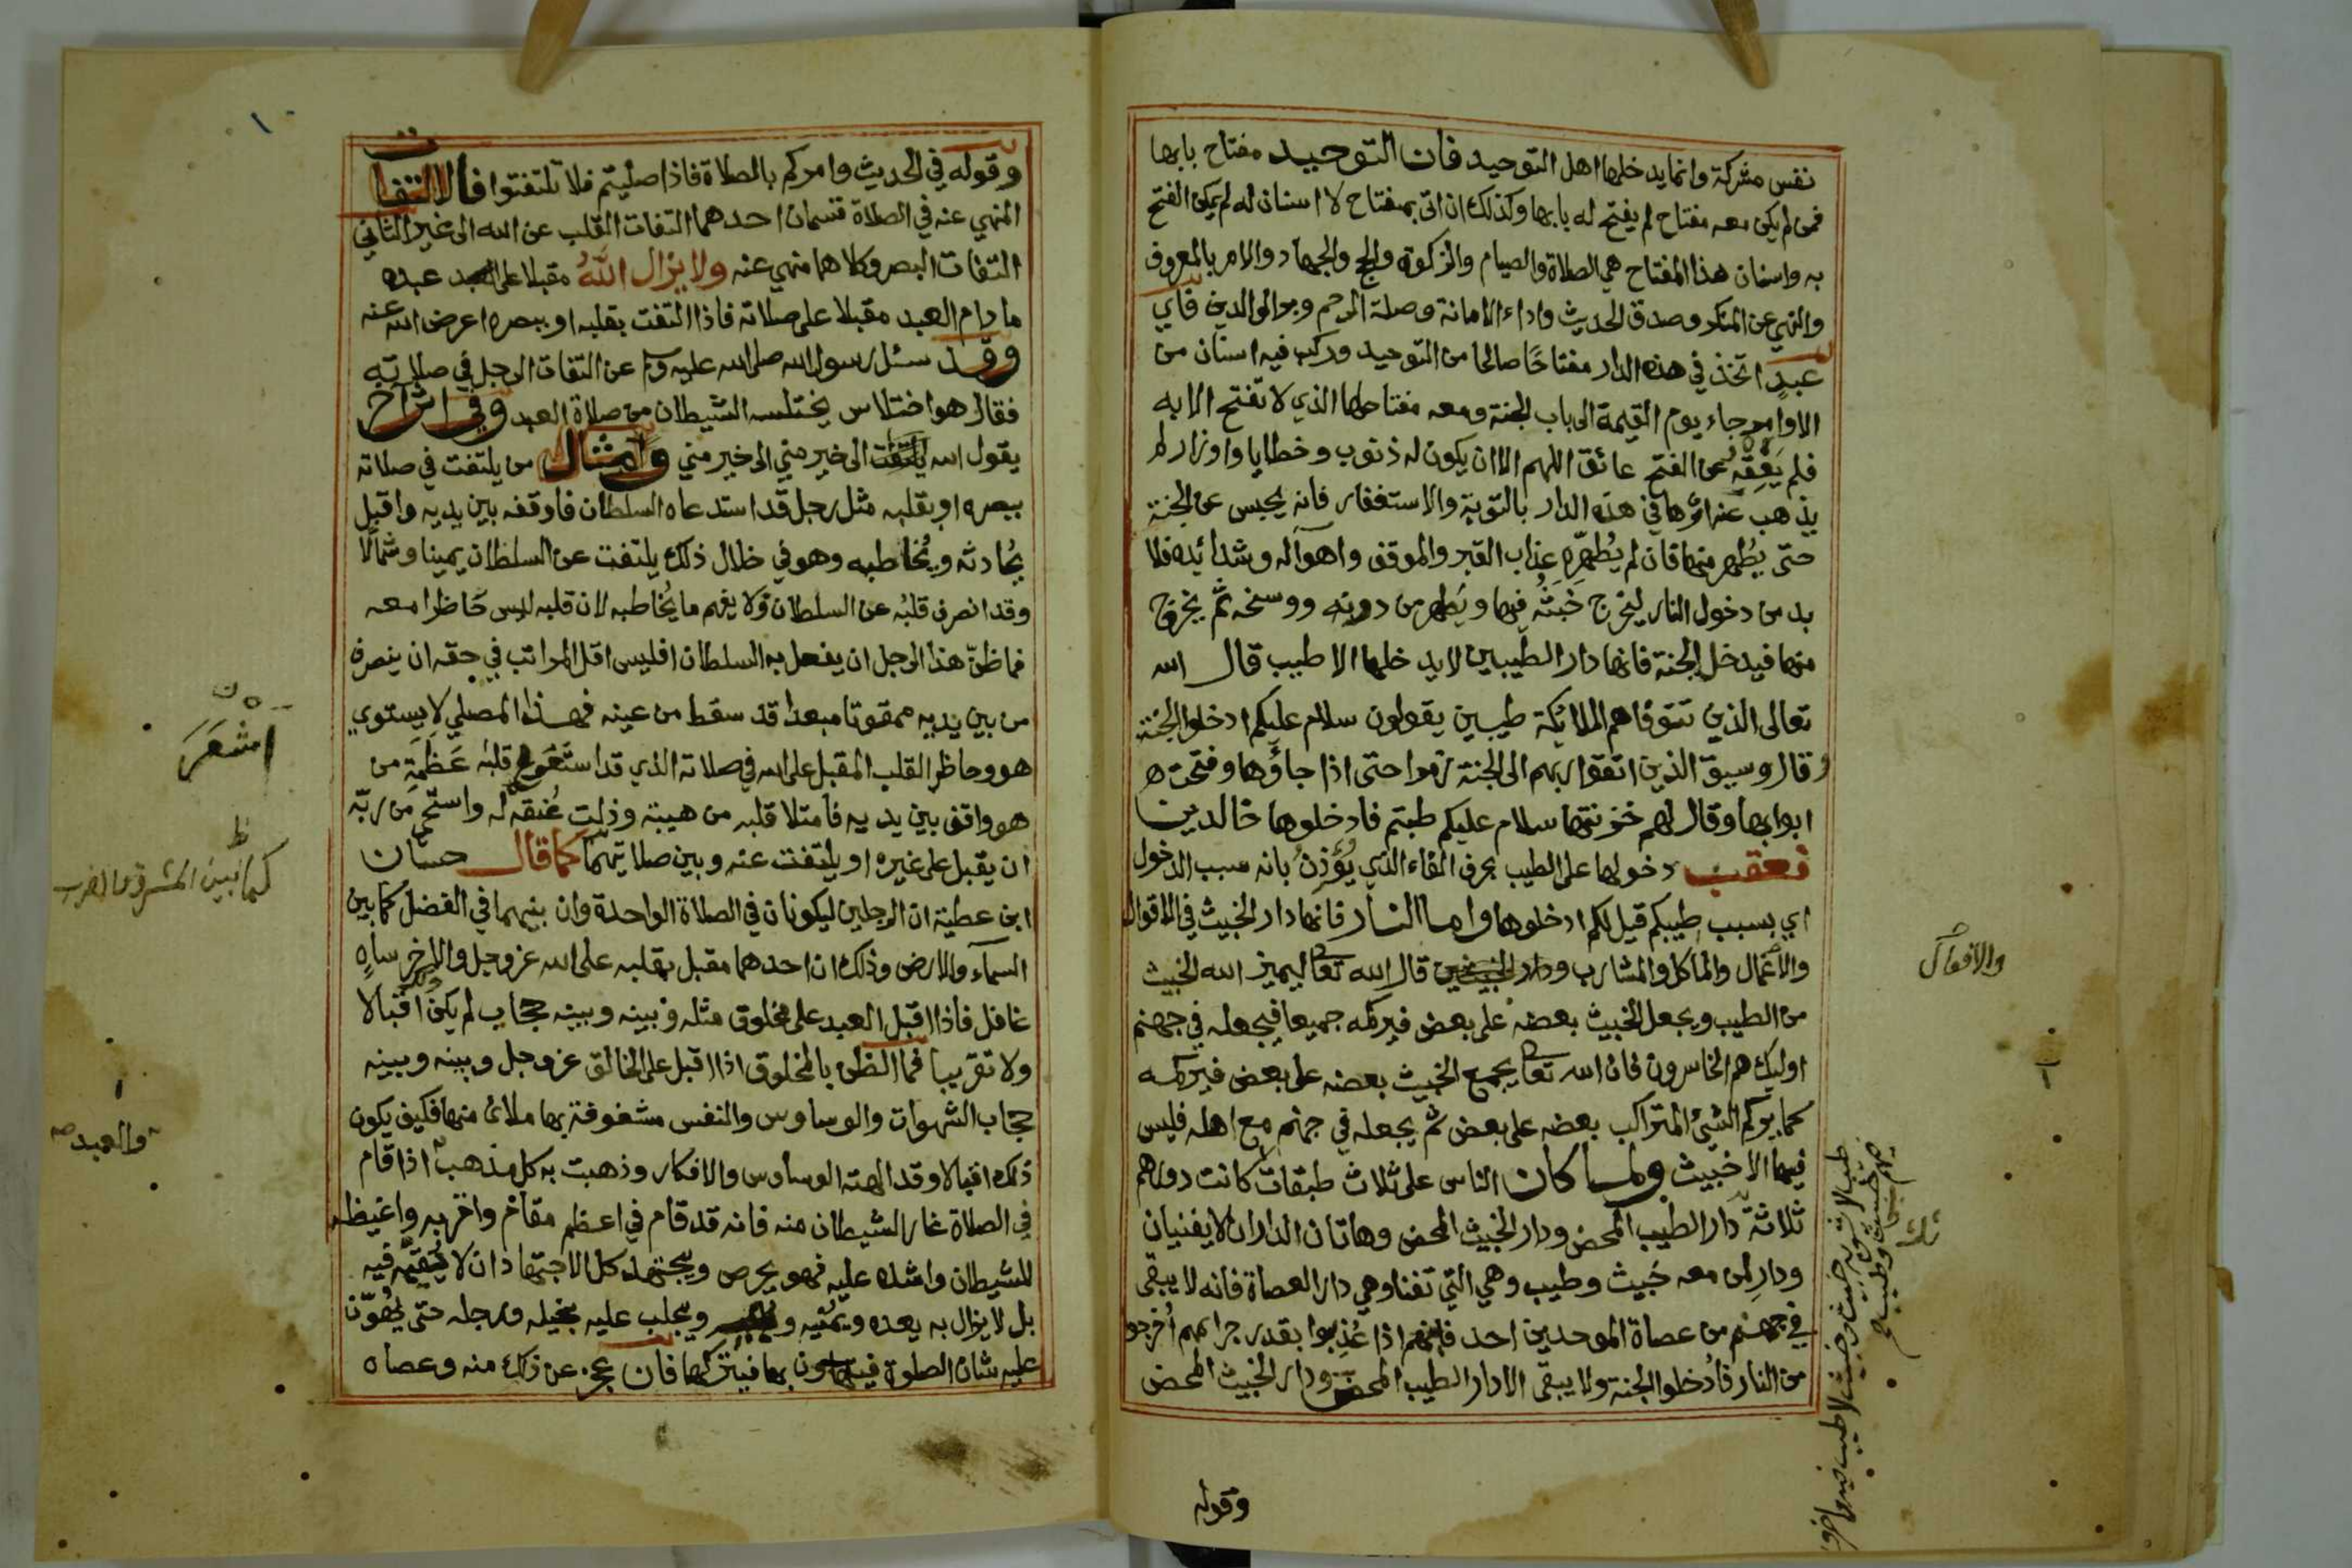 نفس مشركة وانما يدخلها اهل التوحيد فان التوحيد مفتاح بابها
فمن لم يكن معه مفتاح لم يفتح له بابها وكذلك ان اتى بمفتاح لا اسنان له لم يمكن الفتح
به واسنان هذا المفتاح هي الصلاة والصيام والزكوة والحج والجهاد والامر بالمعروف
والنهي عن المنكر وصدق الحديث واداء الامانة وصلة الرحم وبر الوالدين فاي
عبد اتخذ في هذه الدار مفتاحًا صالحا من التوحيد وركب فيه اسنان من
الاوامر جاء يوم القيمة الى باب الجنة ومعه مفتاحها الذي لا تفتح الا به
فلم يعقه عن الفتح عائق اللهم الا ان يكون له ذنوب وخطايا واوزار لم
يذهب عنه اثرها في هذه الدار بالتوبة والاستغفار فانه يحبس عن الجنة
حتى يطهر منها فان لم يُطهّره عذاب القبر والموقف واهواله وشدائده فلا
بد من دخول النار ليخرج خَبَثُه فيها ويُطهر من درنه ووسخه ثم يخرج
منها فيدخل الجنة فانها دار الطيبين لا يدخلها الا طيب قال الله
تعالى الذين تتوفاهم الملائكة طيبين يقولون سلام عليكم ادخلوا الجنة
وقال وسيق الذين اتقوا ربهم الى الجنة زمرا حتى اذا جاؤها وفتحت
ابوابها وقال لهم خزنتها سلام عليكم طبتم فادخلوها خالدين
فعقب دخولها على الطيب بحرف الفاء الذي يُؤذِنُ بانه سبب الدخول
اي بسبب طيبكم قيل لكم ادخلوها واما النار فانها دار الخبيث في الاقوال
والاعمال والمآكل والمشارب ودار الخبيثين قال الله تعا ليميز الله الخبيث
من الطيب ويجعل الخبيث بعضه على بعض فيركمه جميعا فيجعله في جهنم
اوليك هم الخاسرون فان الله تعا يجمع الخبيث بعضه على بعض فيركمه
كما يركم الشيئ المتراكب بعضه على بعض ثم يجعله في جهنم مع اهله فليس
فيها الا خبيث ولما كان الناس على ثلاث طبقات كانت دورهم
ثلاثة دار الطيب المحض ودار الخبيث المحض وهاتان الداران لا يفنيان
ودار لمن معه خَبيث وطيب وهي التي تفنا وهي دار العصاة فانه لا يبقى
في جهنم من عصاة الموحدين احد فانهم اذا عُذبوا بقدر جرائمهم اُخرجوا
من النار فأدخلوا الجنة ولا يبقى الا دار الطيب المحض ودار الخبيث المحض
والافعال
طيب لا يشوبه خبيث وخبيث لا طيب فيه واخرون
فيهم خبث وطيب
وقوله
وقوله في الحديث وامركم بالصلاة فاذا صليتم فلا تلتفتوا فالالتفات
المنهي عنه في الصلاة قسمان احدهما التفات القلب عن الله الى غير الثاني
التفات البصر وكلاهما منهي عنه ولا يزال اللهُ مقبلا على عبده
ما دام العبد مقبلا على صلاته فاذا التفت بقلبه او ببصره اعرض الله عنه
وقد سئل رسول الله صلى الله عليه وسلم عن التفات الرجل في صلاته
فقال هو اختلاس يختلسه الشيطان من صلاة العبد وفي اثر آخر
يقول الله الى خير مني الى خير مني وامثال من يلتفت في صلاته
ببصره او بقلبه مثل رجل قد استدعاه السلطان فاوقفه بين يديه واقبل
يُحادثه ويُخاطبه وهو في خلال ذلك يلتفت عن السلطان يمينا وشمالا
وقد انصرف قلبُه عن السلطان ولا يفهم ما يُخاطبه لان قلبه ليس حَاظرا معه
فما ظنّ هذا الرجل ان يفعل به السلطان افليس اقل المراتب في حقه ان ينصرف
من بين يديه ممقوتا مبعدا قد سقط من عينه فهذا المصلي لا يستوي
هو وحاظر القلب المقبل على الله في صلاته الذي قد قلبُه عَظَمَةِ من
هو واقف بين يديه فامتلا قلبه من هيبة وذلت عُنقه له واستحى من ربّه
ان يقبل على غيره او يلتفت عنه وبين صلاتيهما كما قال حسان
ابن عطية ان الرجلين ليكونان في الصلاة الواحدة وان بينهما في الفضل كما بين
السماء والارض وذلك ان احدهما مقبل بقلبه على الله عز وجل والاخر ساهٍ
غافل فاذا اقبل العبد على مخلوق مثله وبينه وبينه حجاب لم يكن اقبالا
ولا تقريبا فما الظن بالمخلوق اذا اقبل على الخالق عز وجل وبينه وبينه
حجاب الشهوات والوساوس والنفس مشغوفة بها ملائ منها فكيف يكون
ذلك اقبالا وقد الهته الوساوس والافكار وذهبت به كل مذهب اذا قام
في الصلاة غار الشيطان منه فانه قد قام في اعظم مقام واقربه واغيظه
للشيطان واشده عليه فهو يحرص ويجتهد كل الاجتهاد ان لا يُقيمه فيه
بل لا يزال به يعده ويمنّيه ويجلب عليه بخيله ورجله حتى يُهوّن
عليه شان الصلوة بها فيتركها فان عجز عن ذلك منه وعصاه
اشعَرَ
كما بين المشرق والمغرب
والعبد